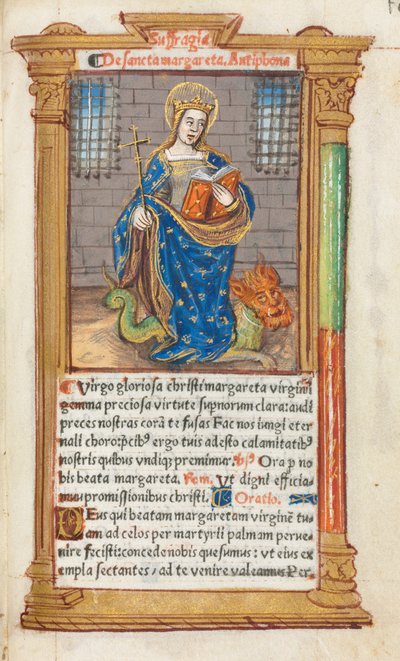 Suffragia
De sancta margareta. Antiphona
Virgo gloriosa christi margareta virginū
gemma preciosa virtute supnorum clara: audi
preces nostras corā te fusas Fac nos iungi eter
nali choro: ꝑcibꝰ ergo tuis adesto calamitatibꝰ
nostris quibus undiqꝫ premimur. ℣. Ora p no
bis beata margareta. Rom. Ut digni efficia
mur promissionibus christi. Oratio.
Deus qui beatam margaretam virginē tu-
am ad celos per martyrii palmam perve-
nire fecisti: concede nobis quesumus: vt eius ex
empla sectantes, ad te venire valeamus Per.